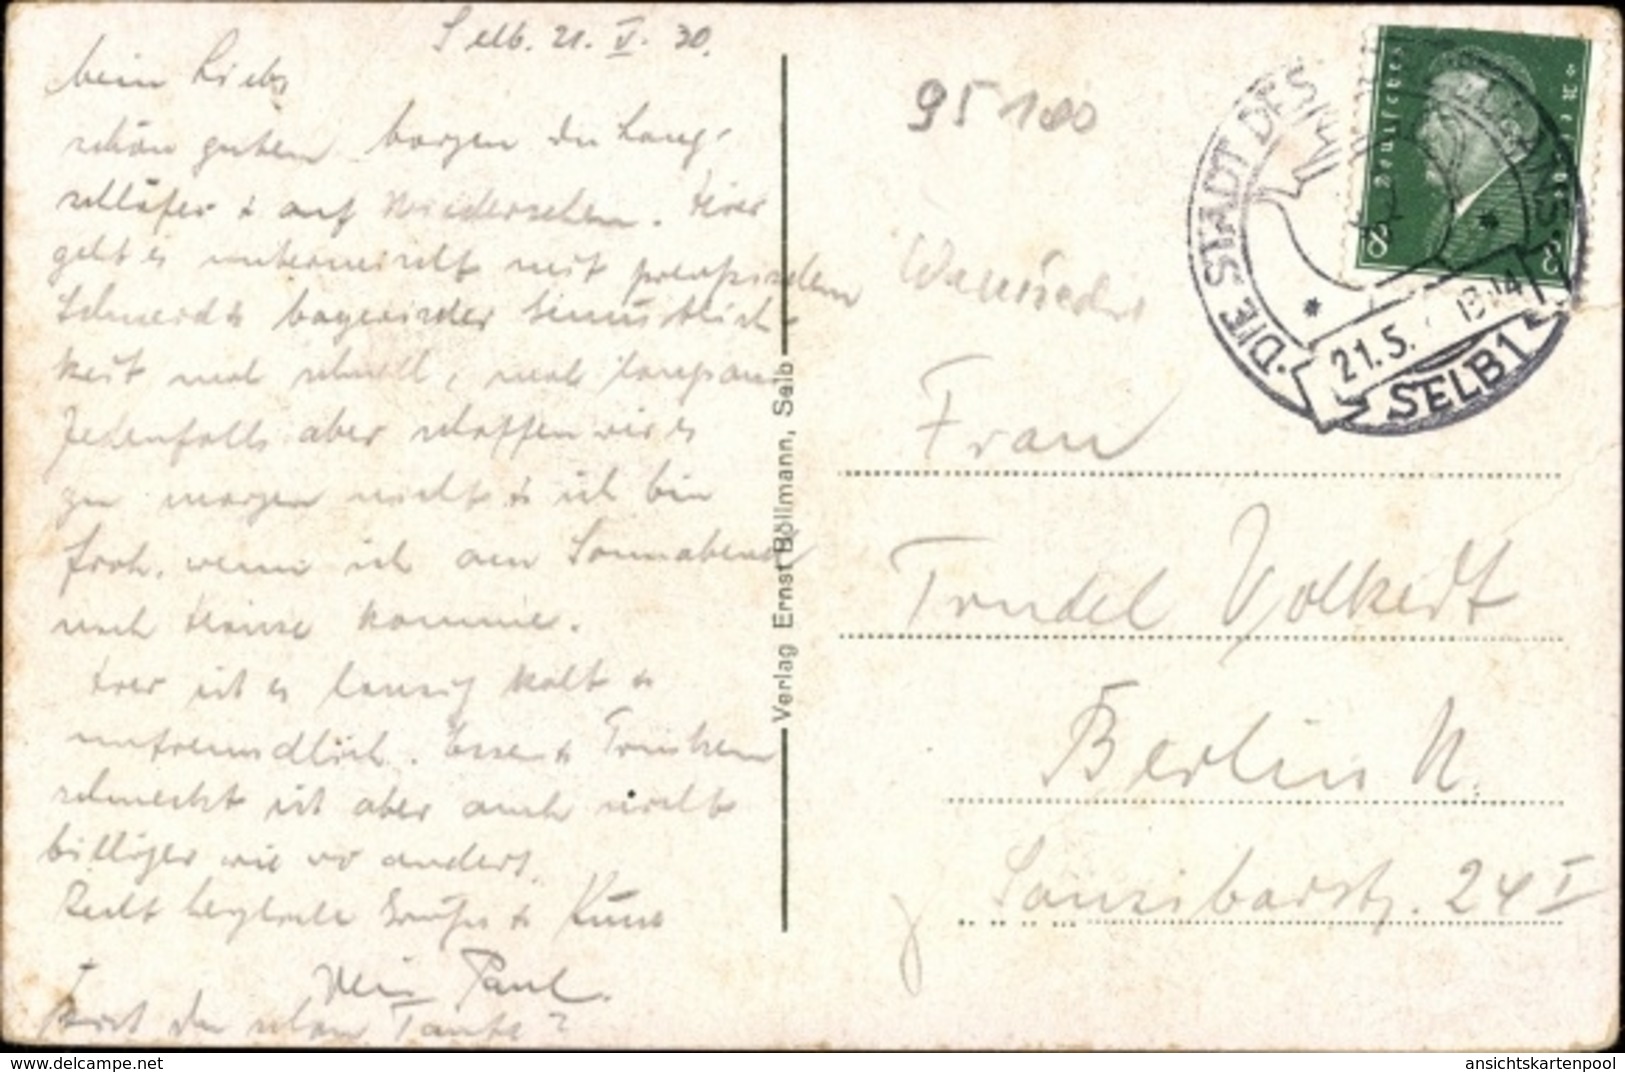 Selb. 21. V. 30.
Mein Liebes
schön guten Morgen du Lang-
schläfer & auf Wiedersehen. Hier
geht es mit preussischem
Schneid & bayerischer Gemütlich-
keit mal schnell, mal langsam
Jedenfalls aber schaffen wir es
zu morgen nicht & ich bin
froh, wenn ich am Sonnabend
nach Hause komme.
Hier ist es kalt &
unfreundlich. Essen & Trinken
schmeckt ist aber auch nicht
billiger wie wo anders.
Recht herzliche Grüße & Küsse
Dein Paul.
Hast du schon Tante?
Verlag Ernst Böllmann, Selb
95100
Deutsches Reich
8 8
DIE STADT DES PORZELLANS
21.5. 13-14
SELB 1
Frau
Trudel Volkert
Berlin N.
Sansibarstr. 24 I
akpool.de
ansichtskartenpool